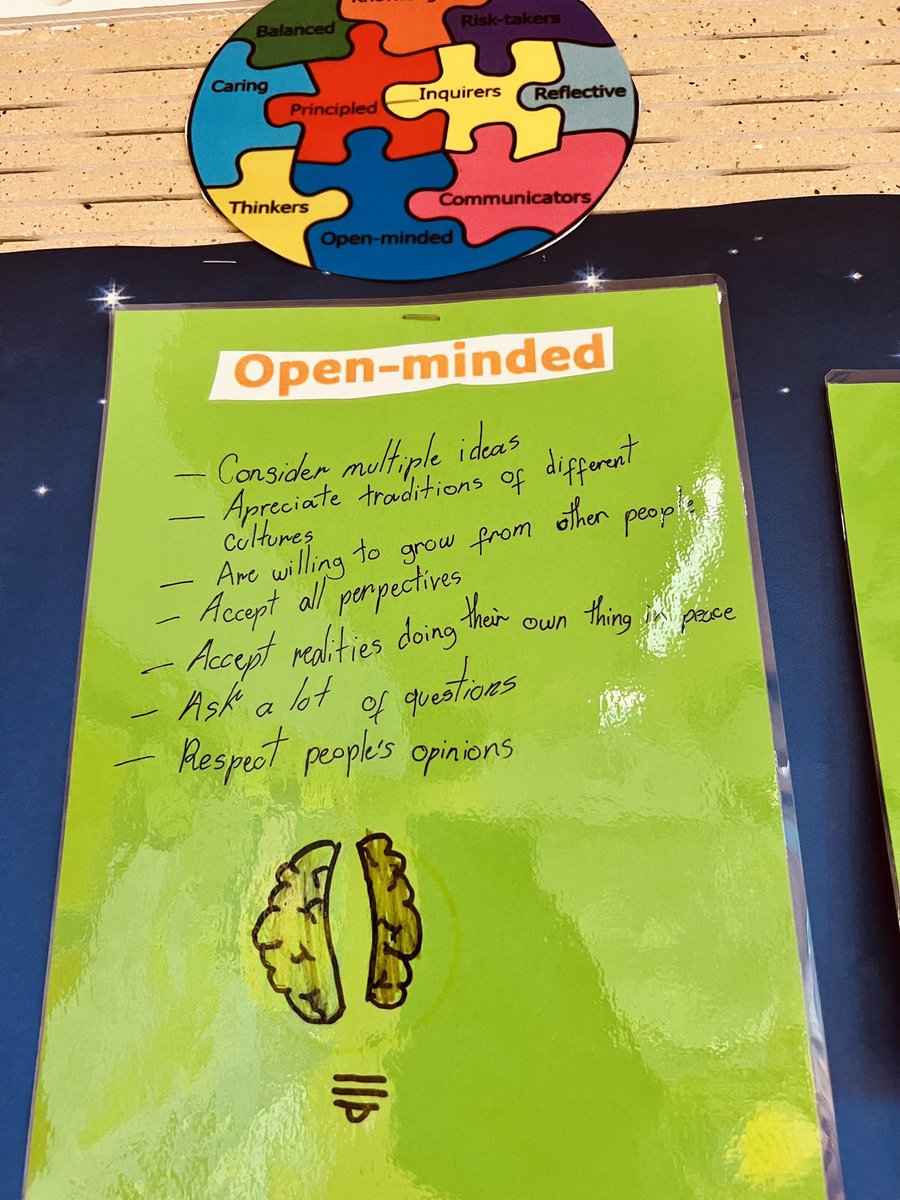 Balanced
Risk-takers
Caring
Principled
Inquirers
Reflective
Thinkers
Communicators
Open-minded
Open-minded
— Consider multiple ideas
— Apreciate traditions of different
cultures
— Are willing to grow from other people
— Accept all perpectives
— Accept realities doing their own thing in peace
— Ask a lot of questions
— Respect people's opinions